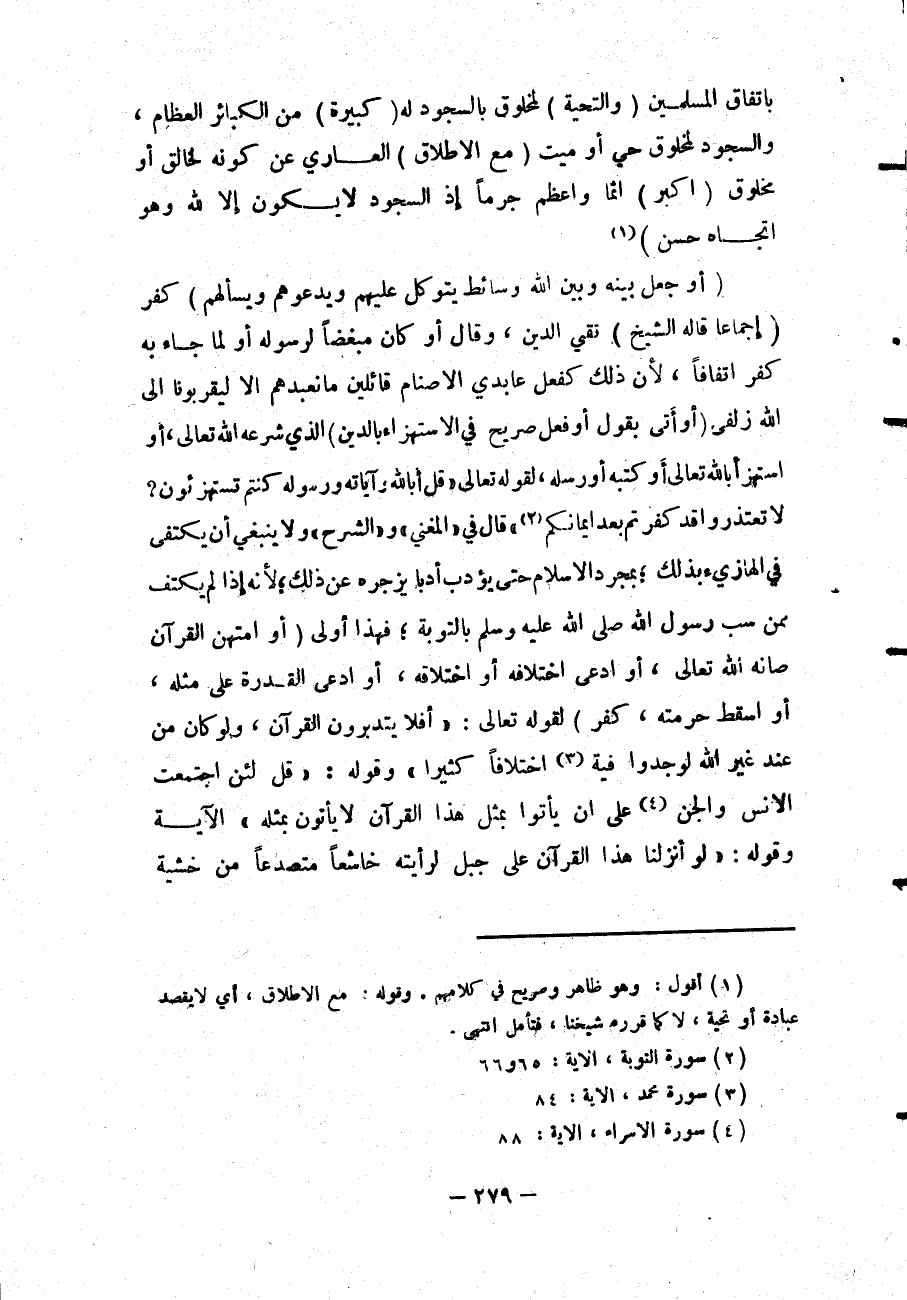 باتفاق المسلمين ( والتحية ) لمخلوق بالسجود له ( كبيرة ) من الكبائر العظام ،
والسجود لمخلوق حي أو ميت ( مع الاطلاق ) العاري عن كونه لخالق أو
مخلوق ( اكبر ) اثما واعظم جرماً إذ السجود لايكون إلا لله وهو
اتجاه حسن ) (١)
( أو جعل بينه وبين الله وسائط يتوكل عليهم ويدعوهم ويسألهم ) كفر
( إجماعا قاله الشيخ ) تقي الدين ، وقال أو كان مبغضاً لرسوله أو لما جاء به
كفر اتفافاً ، لأن ذلك كفعل عابدي الاصنام قائلين مانعبدهم الا ليقربونا الى
الله زلفى ( أو أتى بقول أو فعل صريح في الاستهزاء بالدين ) الذي شرعه الله تعالى ، أو
استهزأ بالله تعالى أو كتبه أو رسله ، لقوله تعالى « قل أبالله وآياته ورسوله كنتم تستهزئون ?
لا تعتذروا قد كفرتم بعد ايمانكم (٢) » قال في « المغني » و « الشرح » ولا ينبغي أن يكتفى
في الهازيء بذلك ؛ بمجرد الاسلام حتى يؤدب أدبا يزجره عن ذلك ؛ لأنه إذا لم يكتف
بمن سب رسول الله صلى الله عليه وسلم بالتوبة ؛ فهذا أولى ( أو امتهن القرآن
صانه الله تعالى ، أو ادعى اختلافه أو اختلاقه ، أو ادعى القدرة على مثله ،
أو اسقط حرمته ، كفر ) لقوله تعالى : « أفلا يتدبرون القرآن ، ولو كان من
عند غير الله لوجدوا فية (٣) اختلافاً كثيرا » وقوله : « قل لئن اجتمعت
الانس والجن (٤) على ان يأتوا بمثل هذا القرآن لايأتون بمثله » الآية
وقوله : « لو أنزلنا هذا القرآن على جبل لرأيته خاشعاً متصدعاً من خشية
(١) أقول : وهو ظاهر وصريح في كلامهم . وقوله : مع الاطلاق ، أي لايقصد
عبادة أو تحية ، لا كما قرره شيخنا ، فتأمل انتهى .
(٢) سورة التوبة ، الاية : ٦٥و٦٦
(٣) سورة محمد ، الاية : ٨٤
(٤) سورة الاسراء ، الاية : ٨٨
– ٢٧٩ –